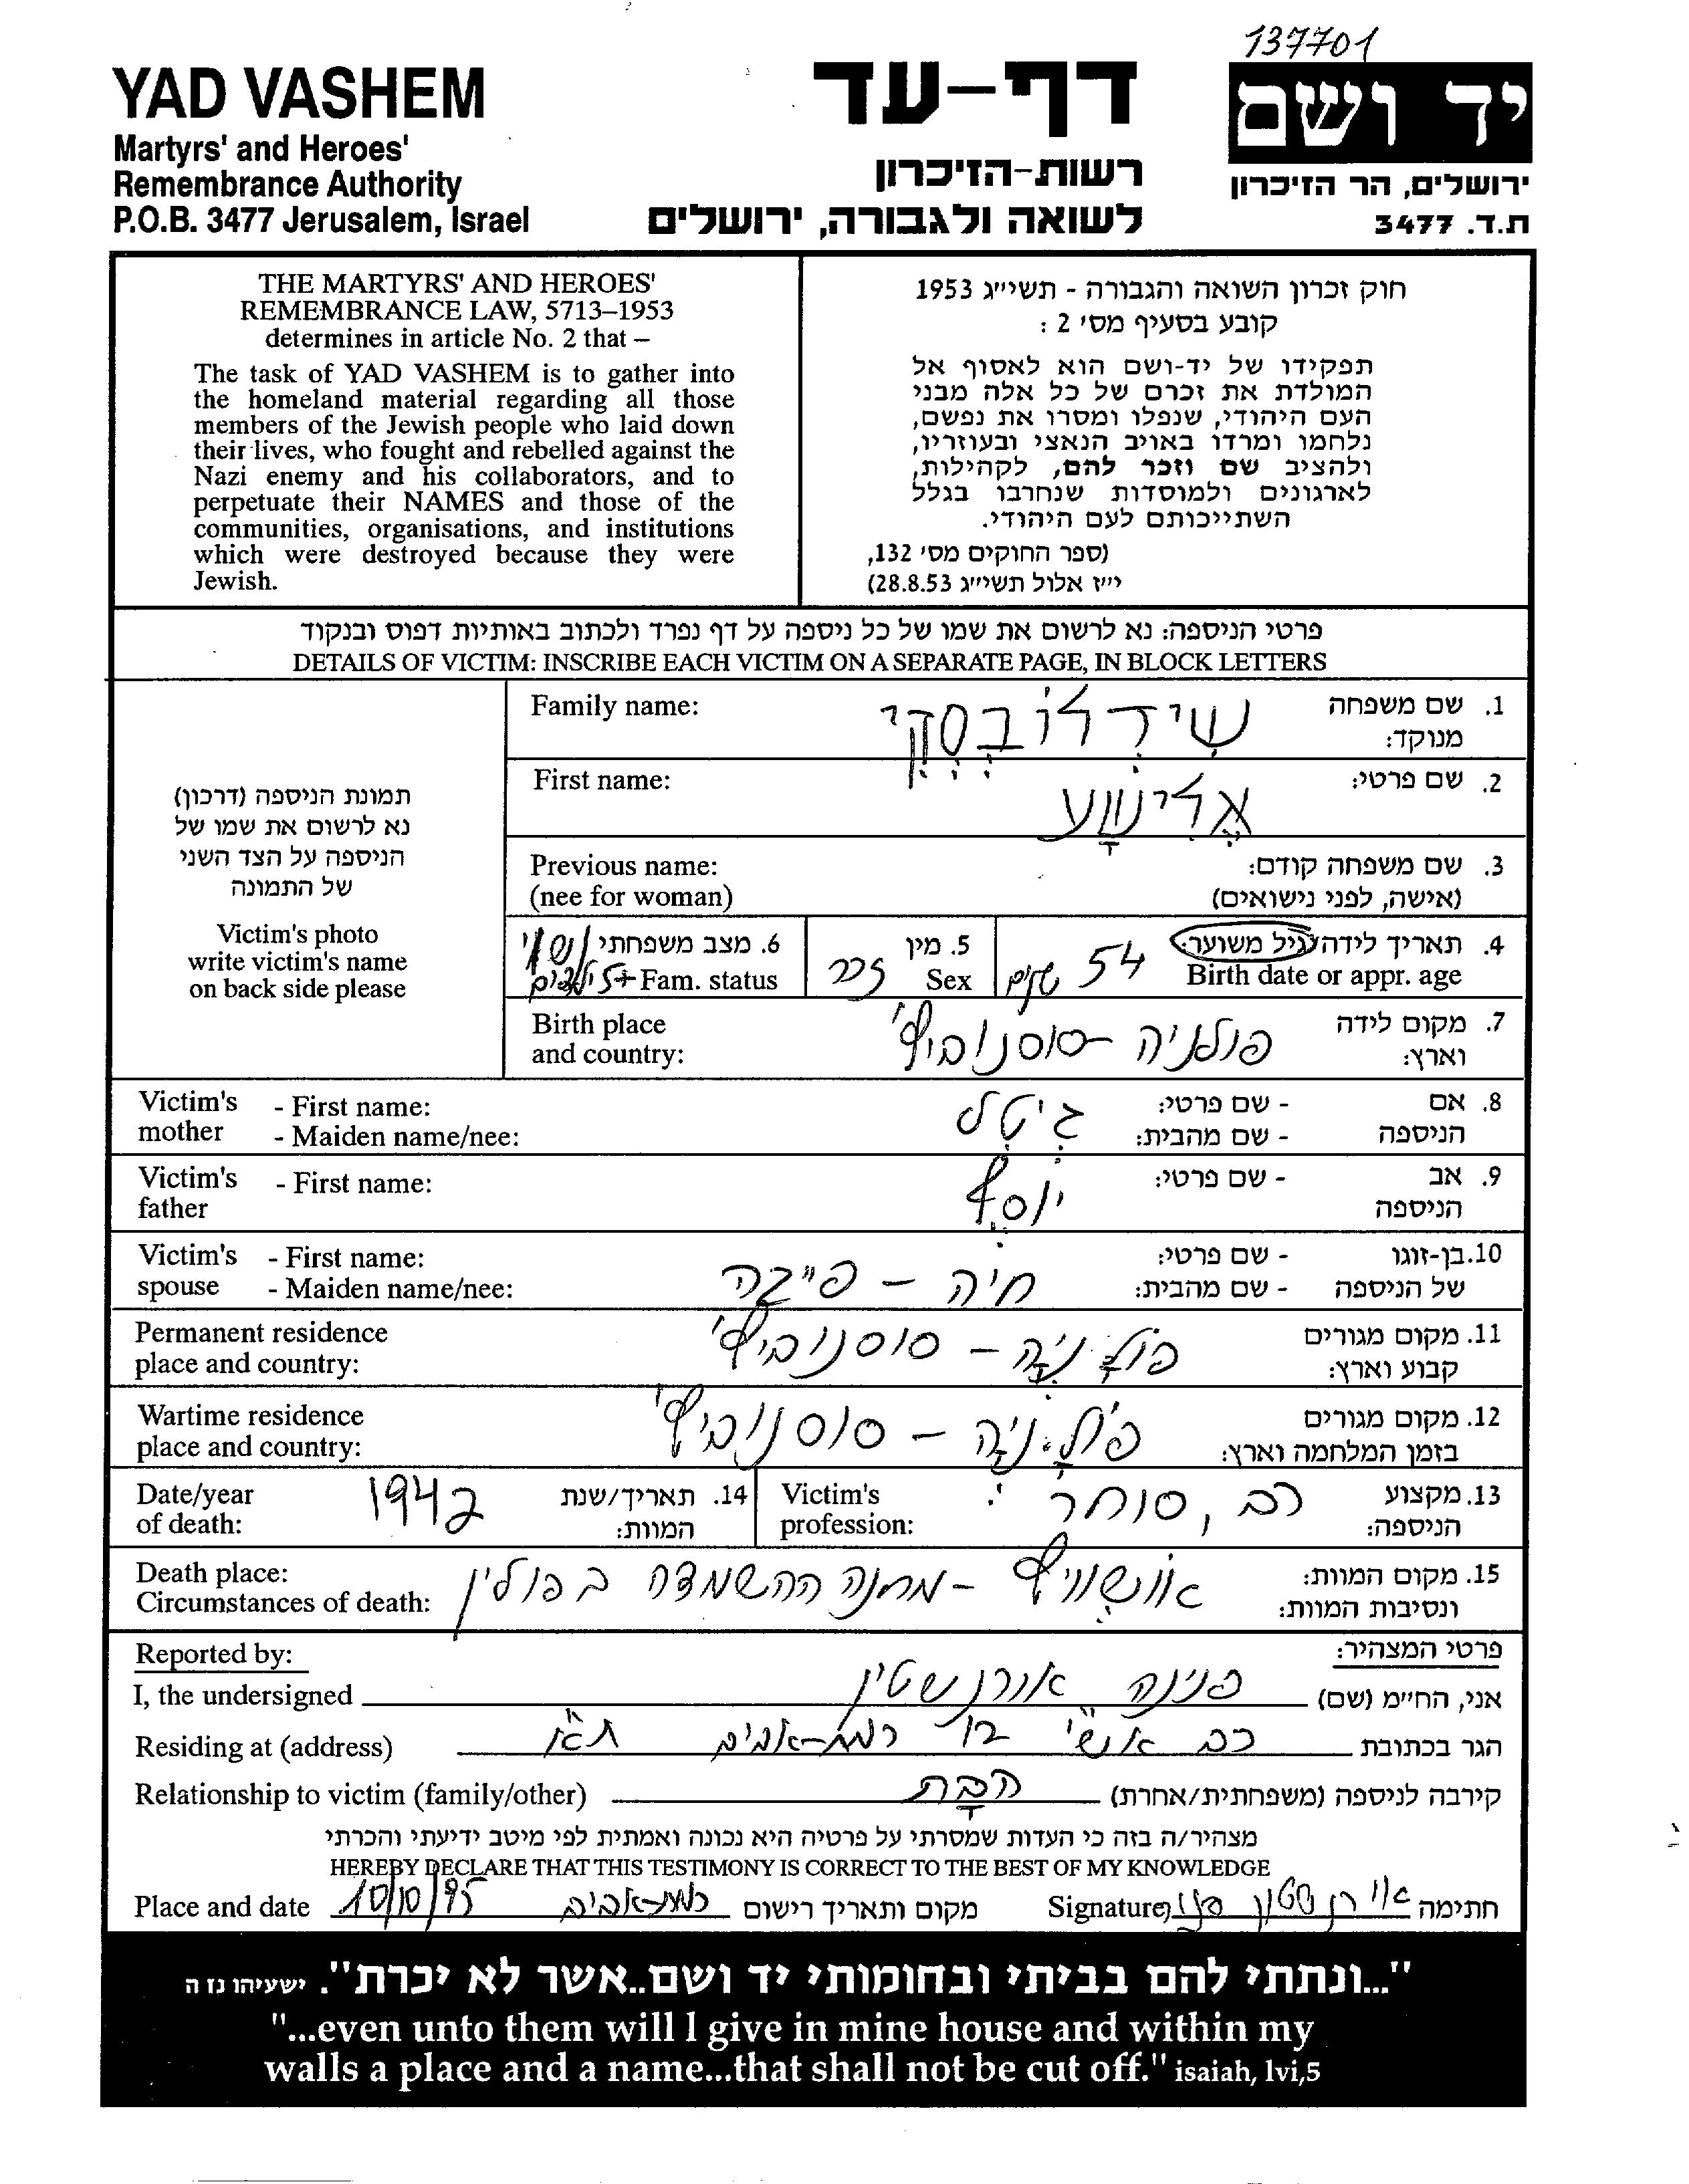 137701
YAD VASHEM
Martyrs' and Heroes'
Remembrance Authority
P.O.B. 3477 Jerusalem, Israel
דף-עד
רשות-הזיכרון
לשואה ולגבורה, ירושלים
יד ושם
ירושלים, הר הזיכרון
ת.ד. 3477
THE MARTYRS' AND HEROES'
REMEMBRANCE LAW, 5713–1953
determines in article No. 2 that –
The task of YAD VASHEM is to gather into
the homeland material regarding all those
members of the Jewish people who laid down
their lives, who fought and rebelled against the
Nazi enemy and his collaborators, and to
perpetuate their NAMES and those of the
communities, organisations, and institutions
which were destroyed because they were
Jewish.
חוק זכרון השואה והגבורה - תשי״ג 1953
קובע בסעיף מס' 2 :
תפקידו של יד-ושם הוא לאסוף אל
המולדת את זכרם של כל אלה מבני
העם היהודי, שנפלו ומסרו את נפשם,
נלחמו ומרדו באויב הנאצי ובעוזריו,
ולהציב שם וזכר להם, לקהילות,
לארגונים ולמוסדות שנחרבו בגלל
השתייכותם לעם היהודי.
(ספר החוקים מס' 132,
י״ז אלול תשי״ג 28.8.53)
פרטי הניספה: נא לרשום את שמו של כל ניספה על דף נפרד ולכתוב באותיות דפוס ובנקוד
DETAILS OF VICTIM: INSCRIBE EACH VICTIM ON A SEPARATE PAGE, IN BLOCK LETTERS
תמונת הניספה (דרכון)
נא לרשום את שמו של
הניספה על הצד השני
של התמונה
Victim's photo
write victim's name
on back side please
Family name: שִידְלוֹבְסְקִי 1. שם משפחה
מנוקד:
First name: אֱלִישָע 2. שם פרטי:
Previous name: 3. שם משפחה קודם:
(nee for woman) (אישה, לפני נישואים)
4. תאריך לידה/גיל משוער: 54 שנים
Birth date or appr. age
5. מין זכר
Sex
6. מצב משפחתי נשוי
Fam. status +5 ילדים
Birth place פולניה - סוסנוביץ' 7. מקום לידה
and country: וארץ:
Victim's - First name: גיטל - שם פרטי: 8. אם
mother - Maiden name/nee: - שם מהבית: הניספה
Victim's - First name: יוסף - שם פרטי: 9. אב
father הניספה
Victim's - First name: חיה - פייגה - שם פרטי: 10. בן-זוגו
spouse - Maiden name/nee: - שם מהבית: של הניספה
Permanent residence פולניה - סוסנוביץ' 11. מקום מגורים
place and country: קבוע וארץ:
Wartime residence פולניה - סוסנוביץ' 12. מקום מגורים
place and country: בזמן המלחמה וארץ:
Date/year 1942 14. תאריך/שנת
of death: המוות:
Victim's רב, סוחר 13. מקצוע
profession: הניספה:
Death place: אושוויץ - מחנה ההשמדה בפולין 15. מקום המוות:
Circumstances of death: ונסיבות המוות:
Reported by: פרטי המצהיר:
I, the undersigned פנינה אורנשטין אני, החי״מ (שם)
Residing at (address) רב אשי 12 רמת-אביב ת"א הגר בכתובת
Relationship to victim (family/other) הבת קירבה לניספה (משפחתית/אחרת)
מצהיר/ה בזה כי העדות שמסרתי על פרטיה היא נכונה ואמתית לפי מיטב ידיעתי והכרתי
HEREBY DECLARE THAT THIS TESTIMONY IS CORRECT TO THE BEST OF MY KNOWLEDGE
Place and date 10/10/95 רמת-אביב מקום ותאריך רישום Signature חתימה
"...ונתתי להם בביתי ובחומותי יד ושם..אשר לא יכרת". ישעיהו נו ה
"...even unto them will I give in mine house and within my
walls a place and a name...that shall not be cut off." isaiah, lvi,5